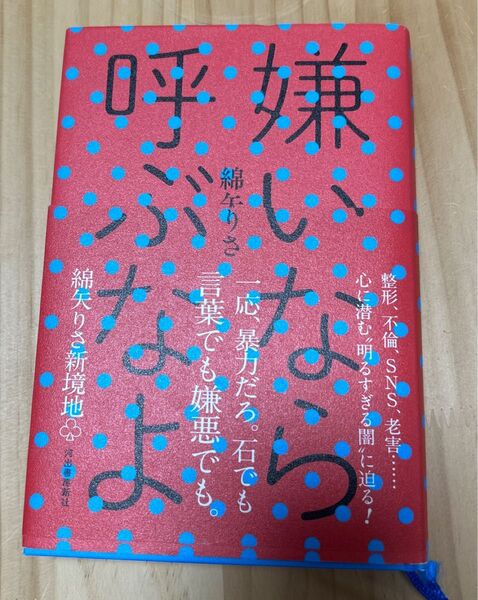 嫌いなら
呼ぶなよ
綿矢りさ
整形、不倫、SNS、老害……
心に潜む〝明るすぎる闇〟に迫る！
一応、暴力だろ。石でも
言葉でも嫌悪でも。
綿矢りさ新境地♧
河出書房新社